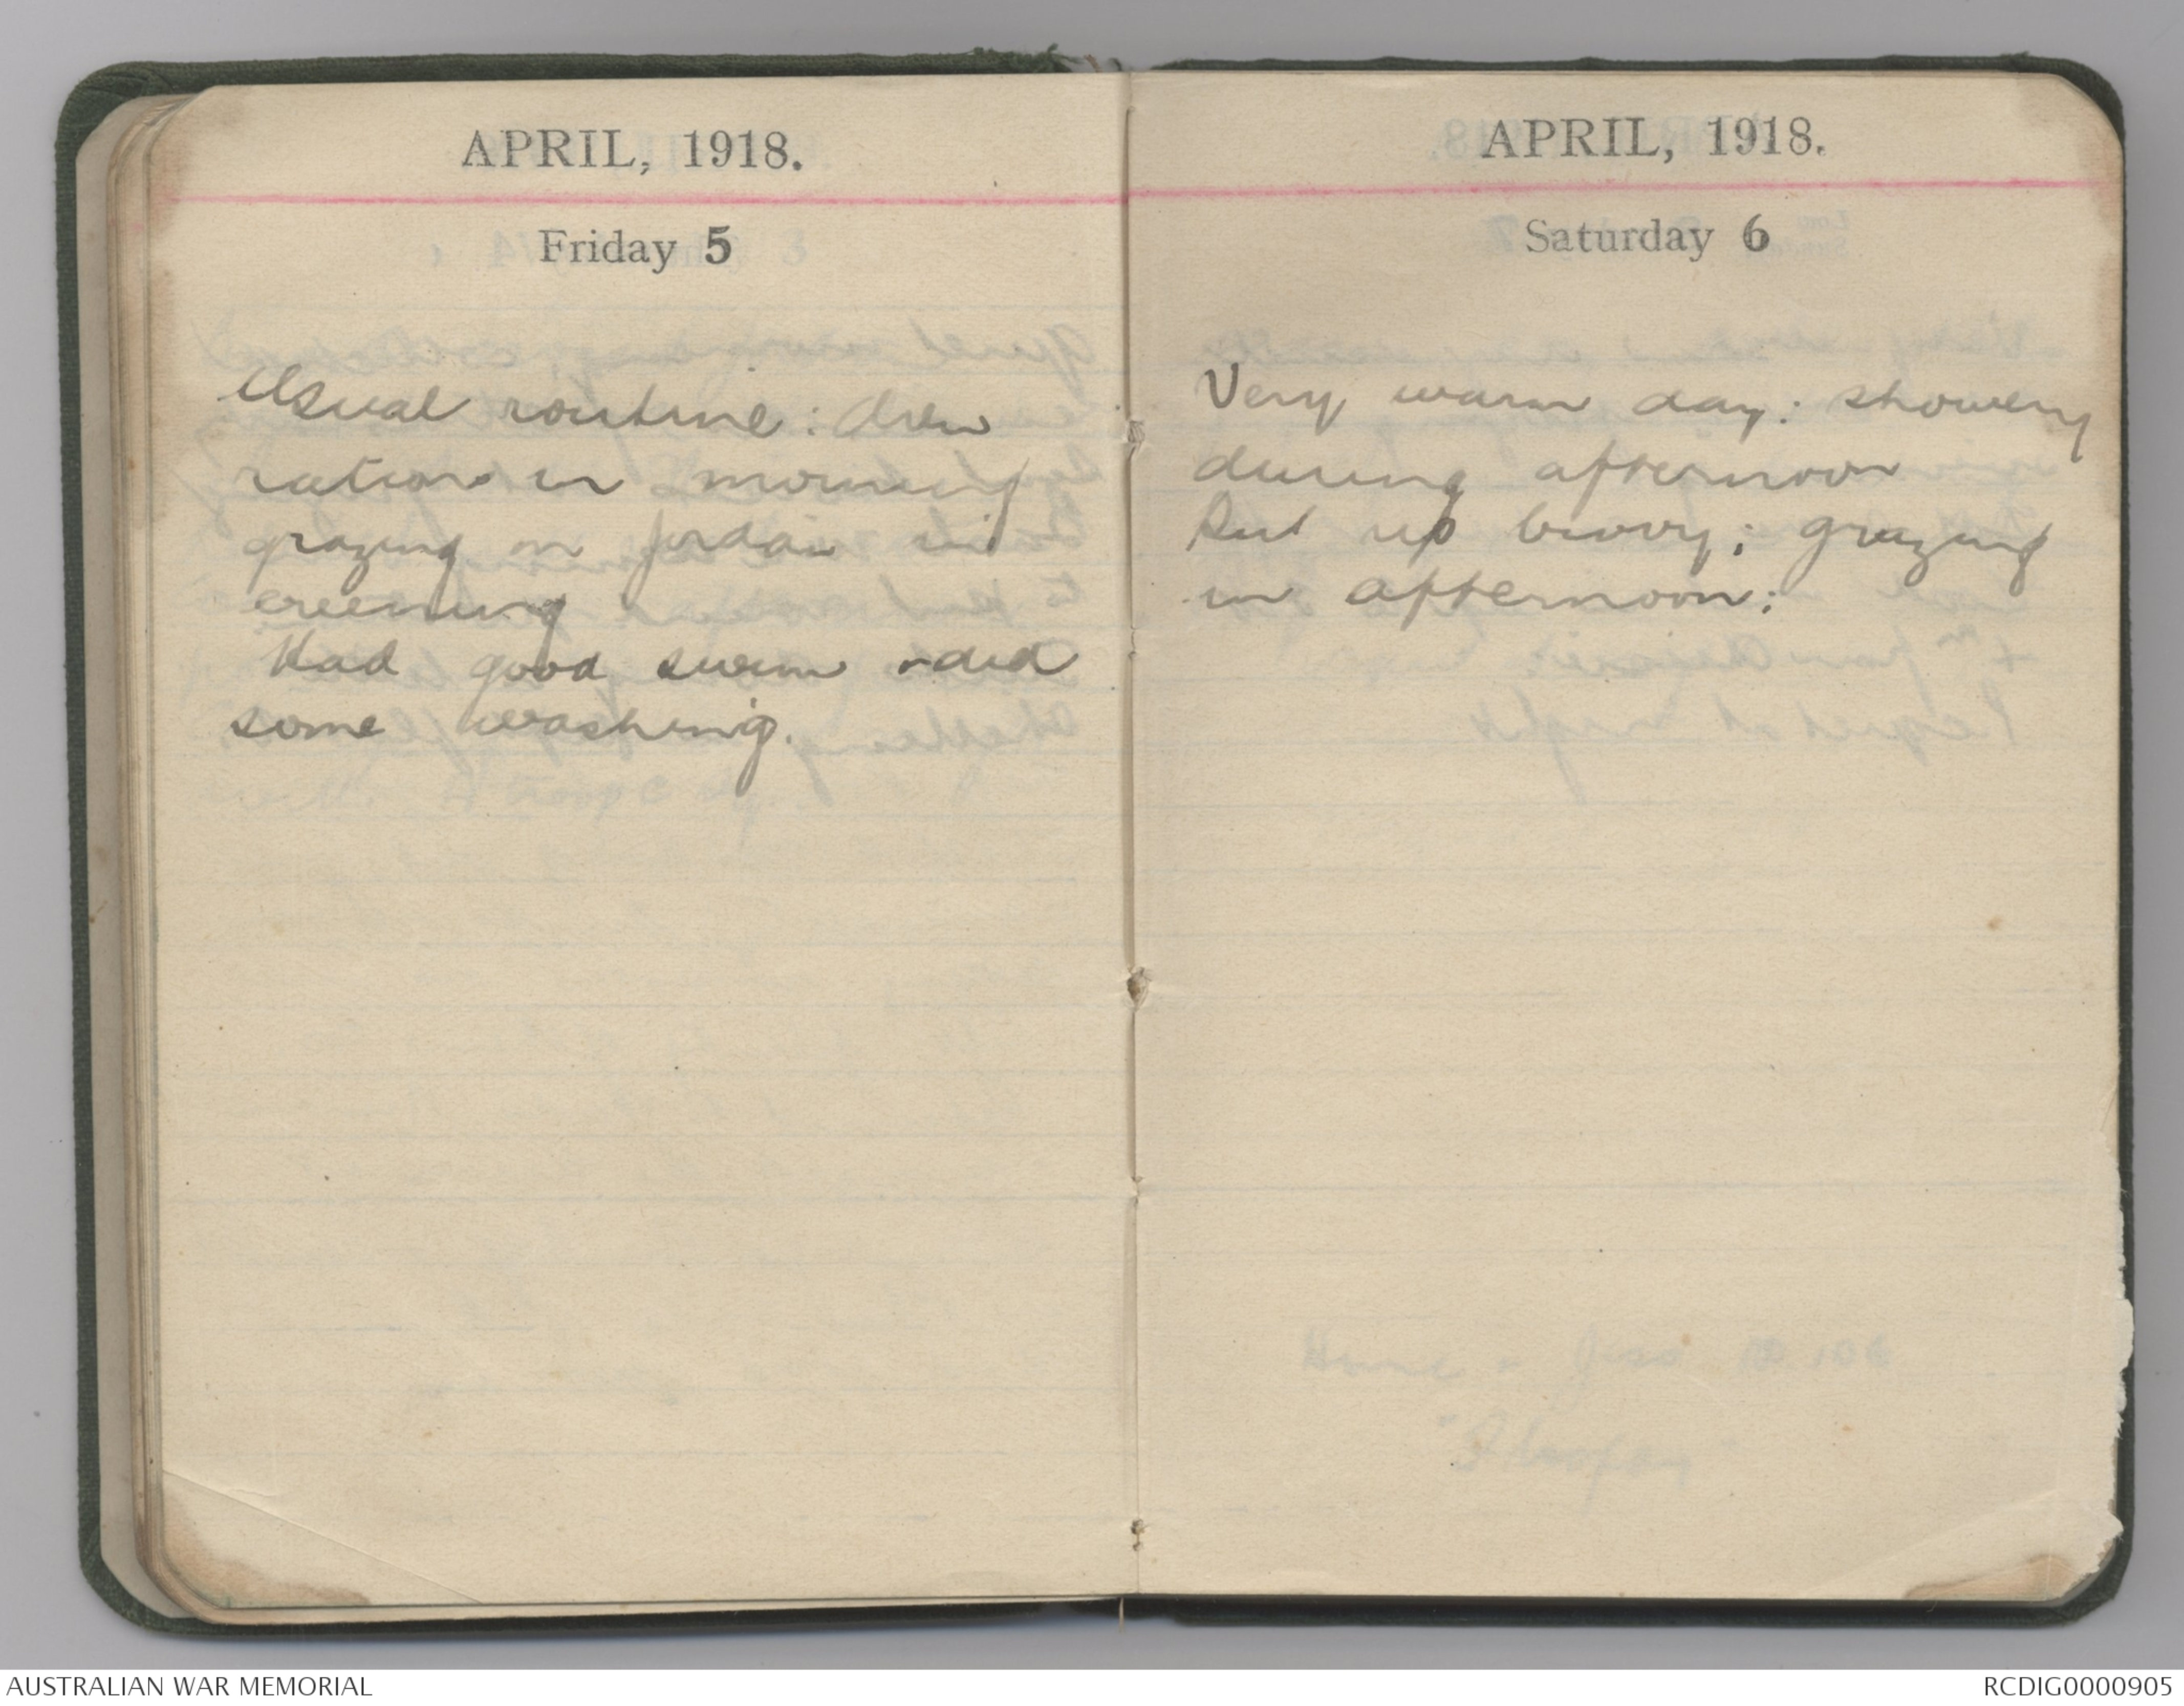 APRIL, 1918.
Friday 5
Usual routine: drew
rations in morning
grazing on Jordan in
evening
Had good swim & did
some washing.
APRIL, 1918.
Saturday 6
Very warm day: showery
during afternoon
Put up bivvy; grazing
in afternoon:
AUSTRALIAN WAR MEMORIAL
RCDIG0000905